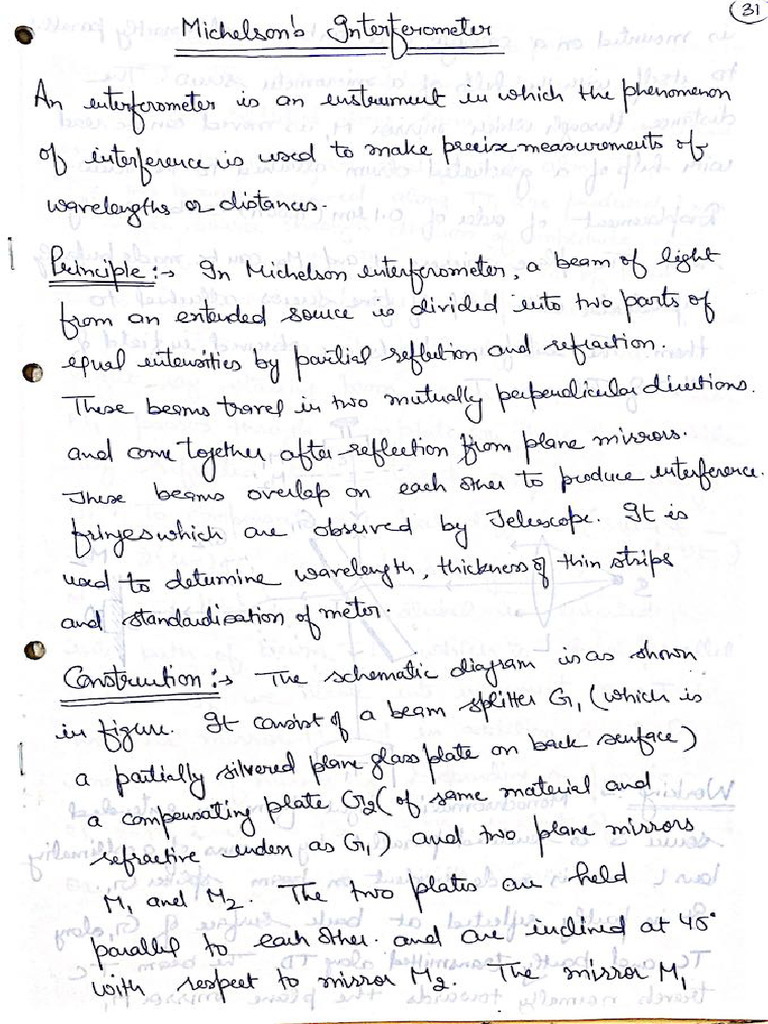 31
Michelson's Interferometer
An interferometer is an instrument in which the phenomenon
of interference is used to make precise measurements of
wavelengths or distances.
Principle :→ In Michelson interferometer, a beam of light
from an extended source is divided into two parts of
equal intensities by partial reflection and refraction.
These beams travel in two mutually perpendicular directions.
and come together after reflection from plane mirrors.
These beams overlap on each other to produce interference.
fringes which are observed by Telescope. It is
used to determine wavelength, thickness of thin strips
and standardisation of meter.
Construction :→ The schematic diagram is as shown
in figure. It consist of a beam splitter G1 (which is
a partially silvered plane glass plate on back surface)
a compensating plate G2 (of same material and
refractive index as G1) and two plane mirrors
M1 and M2. The two plates are held
parallel to each other. and are inclined at 45°
with respect to mirror M2. The mirror M1